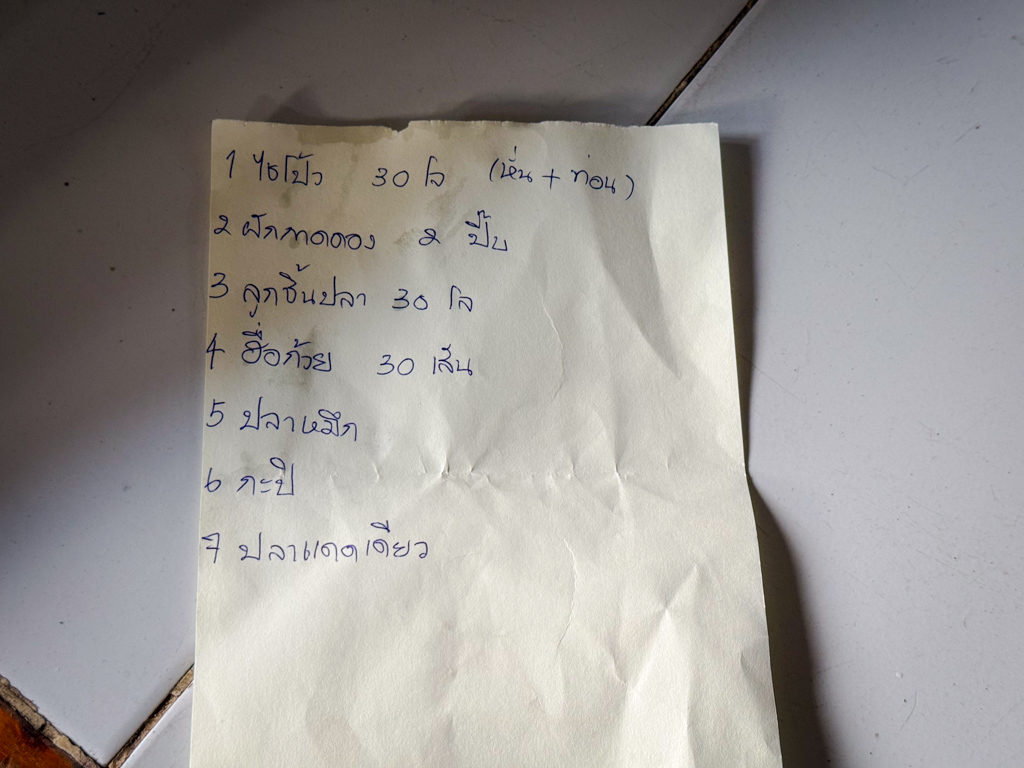 1 ไชโป้ว 30 โล (หั่น + ท่อน)
2 ผักกาดดอง 2 ปี๊บ
3 ลูกชิ้นปลา 30 โล
4 ฮื่อก้วย 30 เส้น
5 ปลาหมึก
6 กะปิ
7 ปลาแดดเดียว